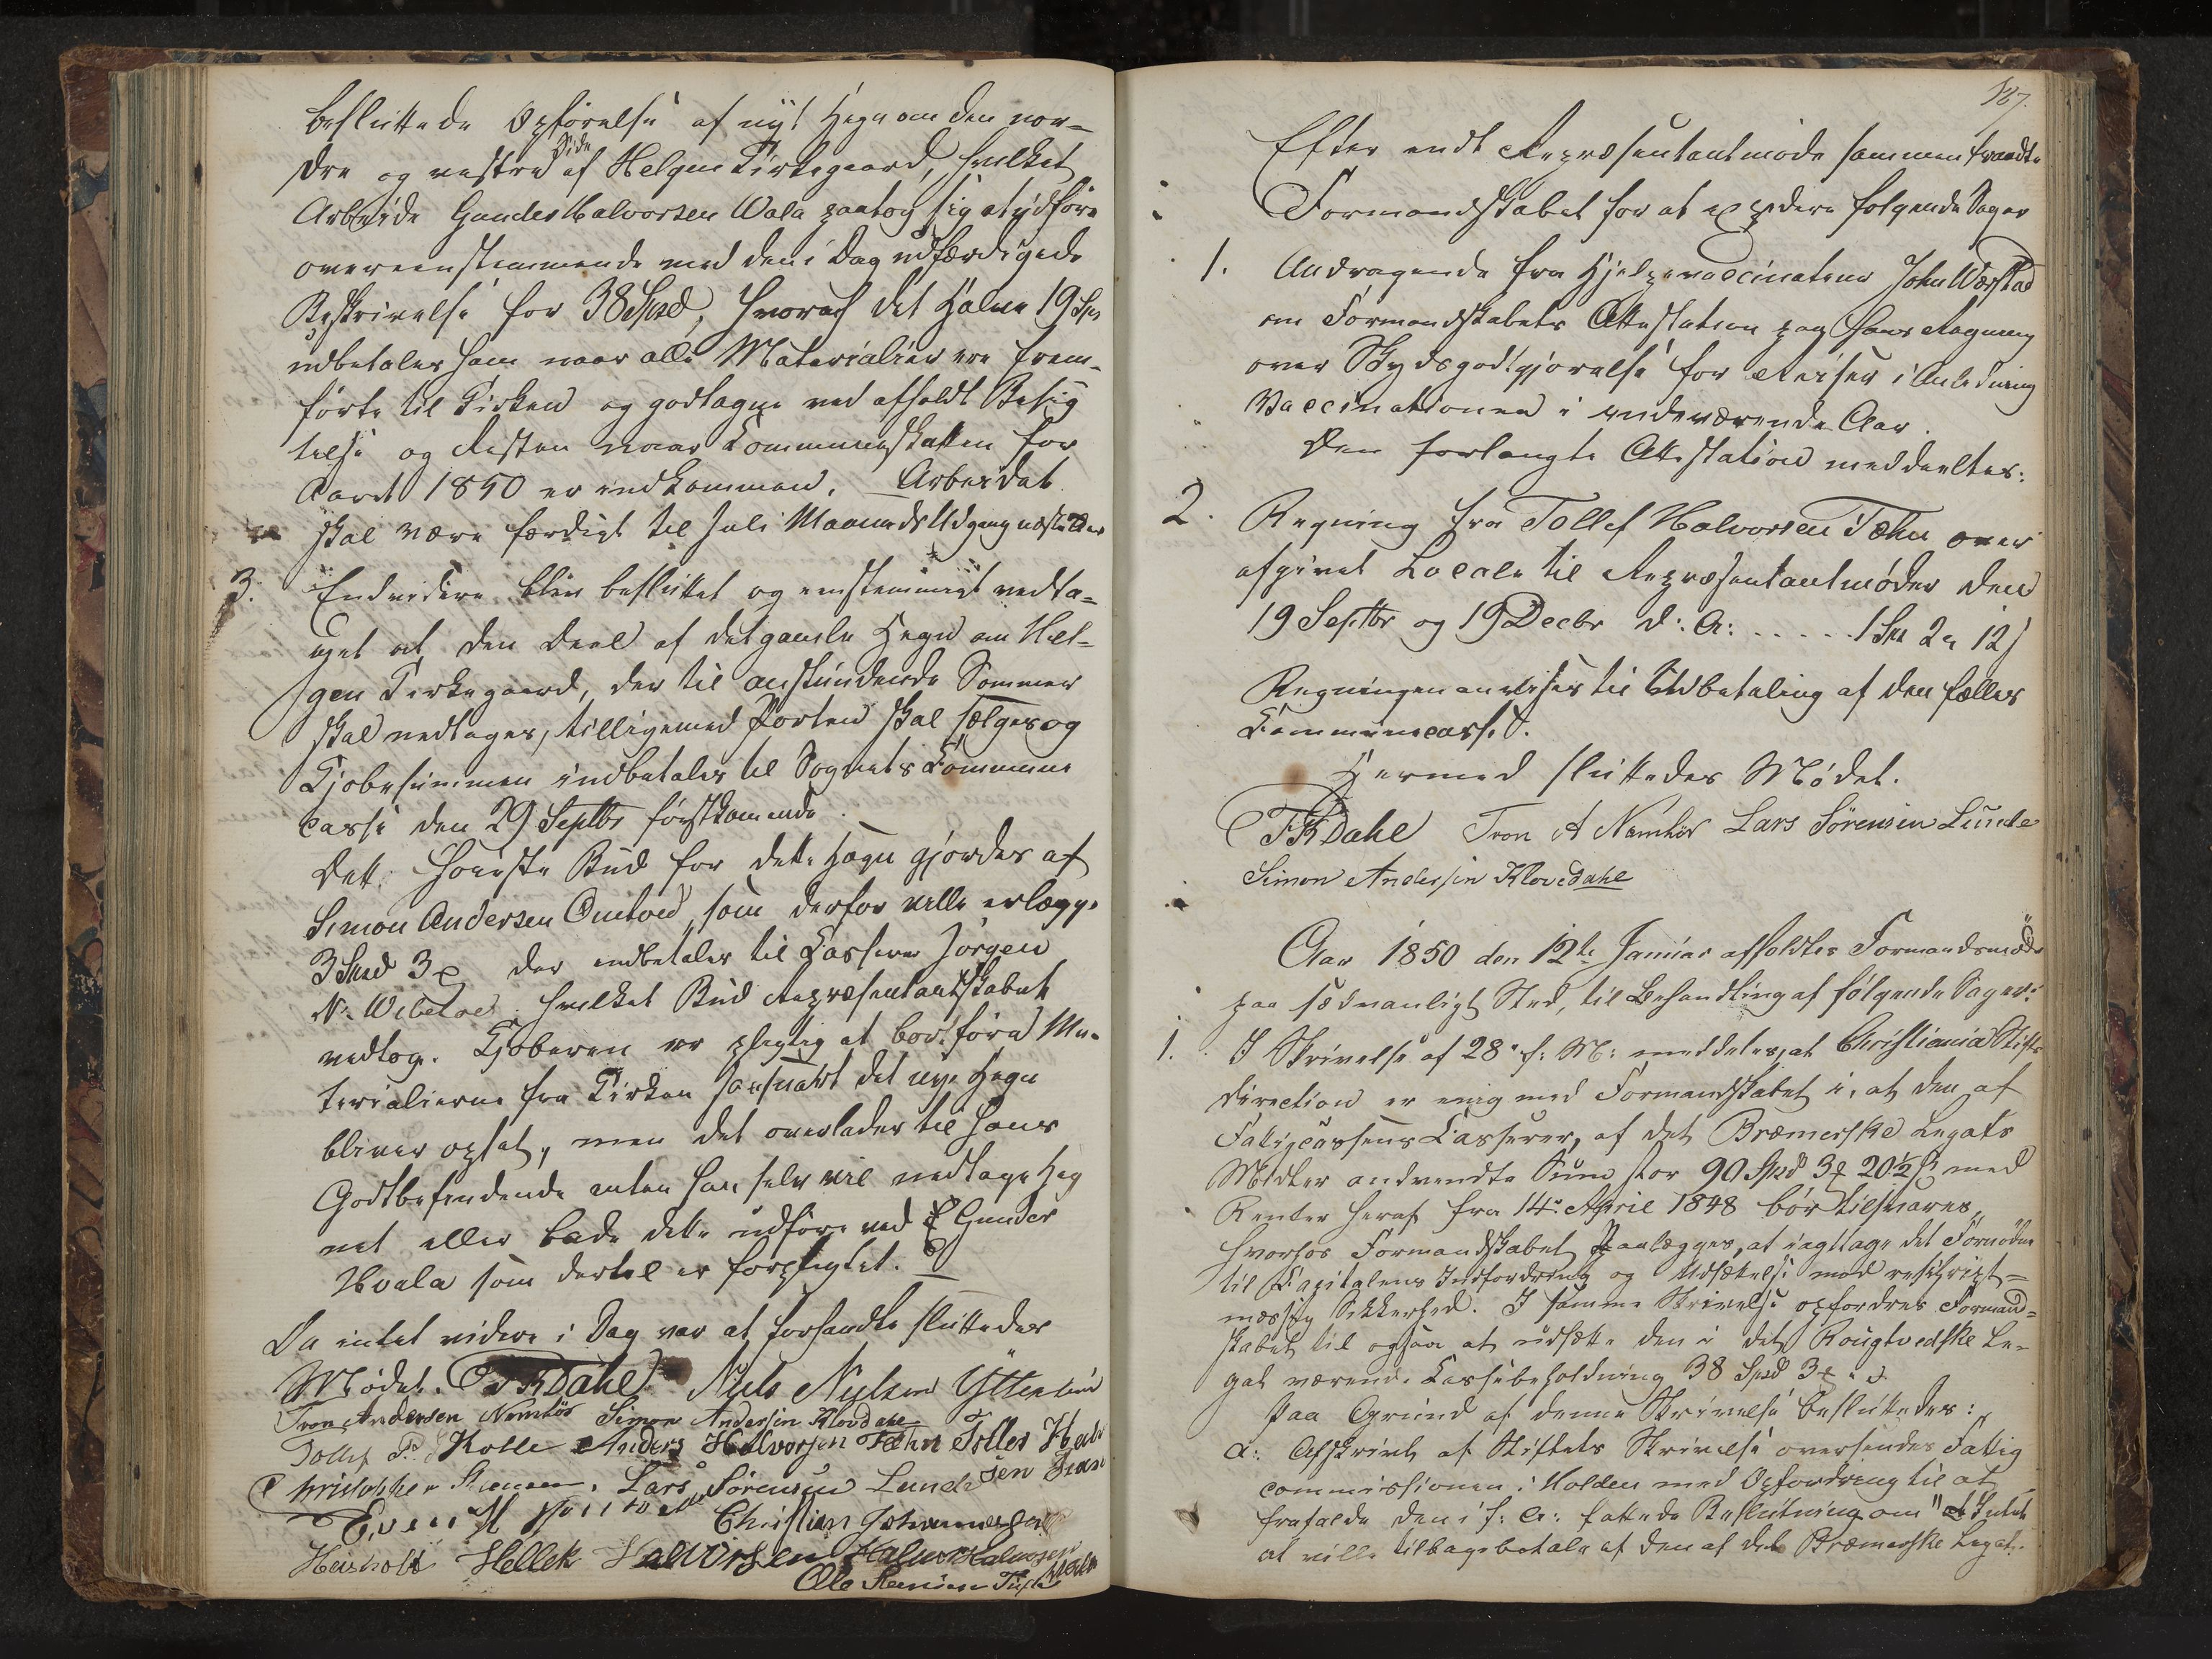 besluttede Opførelse af nyt Hegn om den nor-
dre og vestre Side af Helgen Kirkegaard, hvilket
Arbeide Gunder Halvorsen Wala paatog sig at udføre
overeenstemmende med den i Dag udfærdigede
Beskrivelse for 38 Spd, hvoraf det Halve 19 Spd
udbetales ham naar alle Materialier ere frem-
førte til Kirken og godtagne ved afholdt Besig
telse og Resten naar Kommuneskatten for
Aaret 1850 er indkommen. Arbeidet
skal være færdigt til Juli Maaneds Udgang næste Aar
3. Endvidere blev besluttet og enstemmigt vedta-
get at den Deel af det gamle Hegn om Hel-
gen Kirkegaard, der til anstundende Sommer
skal nedtages, tilligemed Porten skal sælges og
Kjøbesummen indbetales til Sognets Commune
casse den 29 Septbr førstkomende.
Det høieste Bud for dette Hegn gjordes af
Simon Andersen Omtved, som derfor ville erlægge
3 Spd 3 der indbetales til Kasserer Jørgen
N. Wibetoe hvilket Bud Repræsentantskabet
vedtog. Kjøberen er pligtig at bortføre Ma-
terialierne fra Kirken saasnart det nye Hegn
bliver opsat, men det overlades til hans
Godtbefindende enten han selv vil nedtage Heg
net eller lade dette udføre ved Gunder
Hvala som dertil er forpligtet.
Da intet videre i Dag var at forhandle sluttedes
Mødet. FR Dahl Niels Nielsen Ytterbui
Tron Andersen Nomthös Simon Andersen Klovdahl
Tollef P. Kolle Anders Halvorsen Tæhn Tolles Halv
Christopher Lars Sörensen Lunde sen
Even Christian Johannesen
Heisholt Hellek Halvorsen Halvor Halvorsen
Ole Hansen Tufte
187.
Efter endt Repræsentantmøde sammentraadte
Formandskabet for at expedere følgende Sager
1. Andragende fra Hjelpevaccinateur John Wærstad
om Formandskabets Attestation paa hans Regning
over Skydsgodtgjørelse for Reiser i Anledning
Vaccinationen i indeværende Aar.
Den forlangte Attestation meddeeltes:
2. Regning fra Tollef Halvorsen Tæhn over
afgivet Locale til Repræsentantmøder den
19 Septbr og 19 Decbr d: A: . . . . . 1 Spd 2 12
Regningen anvises til Udbetaling af den fælles
Kommunecasse.
Hermed sluttedes Mødet.
FR Dahl Tron A Nomthös Lars Sörensen Lunde
Simon Andersen Klovedahl
Aar 1850 den 12te Januar afholdtes Formandsmöde
paa sædvanligt Sted, til Behandling af følgende Sager:
1. I Skrivelse af 28. f: M: meddeles, at Christiania Stifts
direction er enig med Formandskabet i, at den af
Fattigcassens Casserer, af det Bræmerske Legats
Midler anvendte Sum stor 90 Spd 3 20½ ß med
Renter heraf fra 14de April 1848 bør tilsvares,
hvorhos Formandskabet paalægges, at iagttage det Fornødne
til Kapitalens Indfordring og Udsættelse mod rescript-
mæssig Sikkerhed. I samme Skrivelse opfordres Formand-
skabet til ogsaa at udsætte den i det Rougtvedske Le-
gat værende Kassebeholdning 38 Spd 3
Paa Grund af denne Skrivelse besluttedes:
a: Afskrivt af Stiftets Skrivelse oversendes Fattig
commissionen i Holden med Opfordring til at
frafalde den i f: A: fattede Beslutning om "Intet
at ville tilbagebetale af den af det Bræmerske Legat.